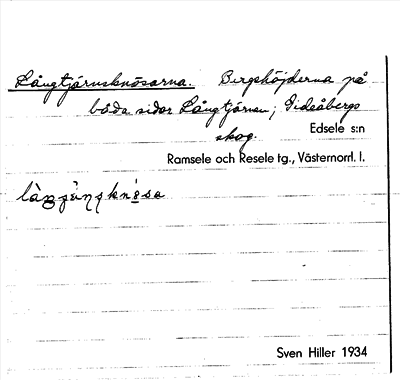 Långtjärnsknösarna. Bergshöjderna på
båda sidor Långtjärnen; Gideåbergs
skog. Edsele s:n
Ramsele och Resele tg., Västernorrl. l.
Sven Hiller 1934